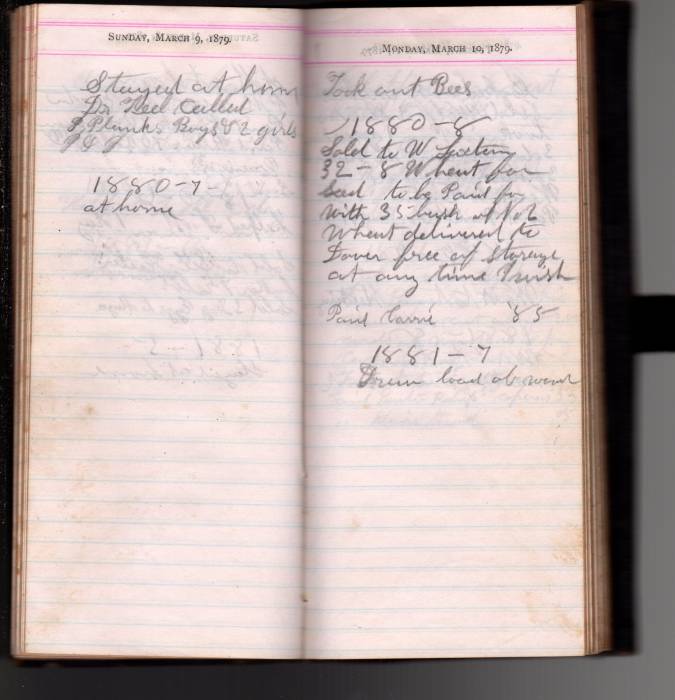 SUNDAY, MARCH 9, 1879.
Stayed at hom
Dr Called
Planks Boys & 2 girls
1880-7-
at home
MONDAY, MARCH 10, 1879.
Took out Bees
1880-8
Sold to W
32-8 Wheat for
Seed to be Paid for
With 35 bush of No 2
Wheat delivered to
Dover free of Storage
at any time I wish
Paid Carrie 85
1881-7
load of wood